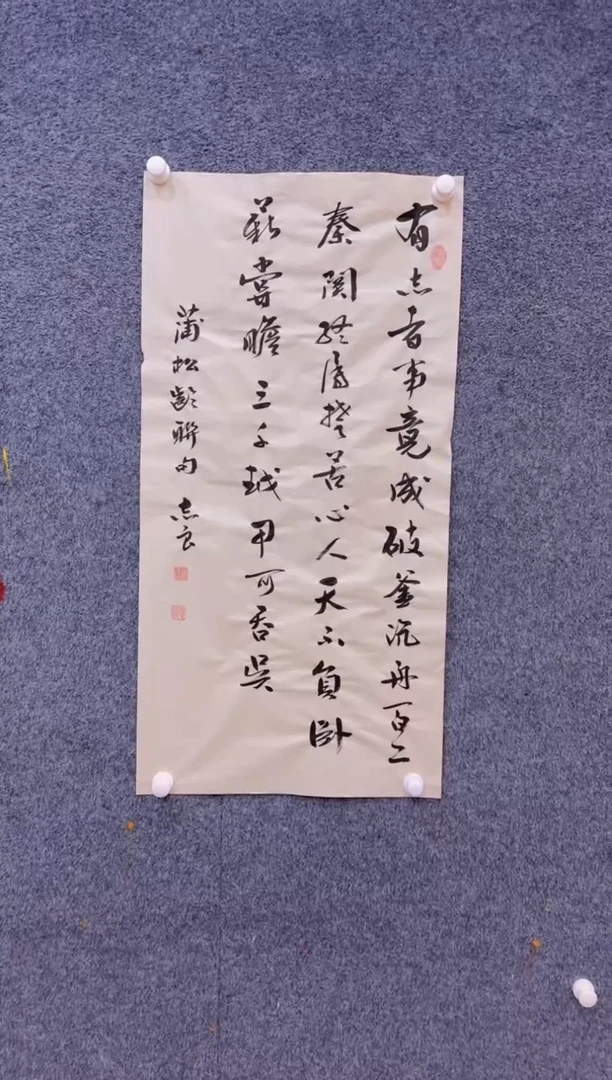 有志者事竟成破釜沉舟一百二
秦関終属楚苦心人天不負卧
薪嘗瞻三千越甲可吞吳
蒲松齡聯句 志良